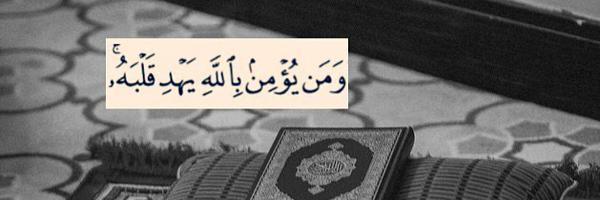 وَمَن يُؤْمِنۢ بِٱللَّهِ يَهْدِ قَلْبَهُۥۚ